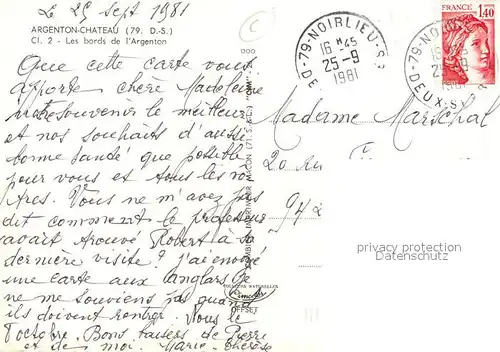 Le 25 sept 1981
ARGENTON-CHATEAU (79. D.-S.)
Cl. 2 - Les bords de l'Argenton
Que cette carte vous
apporte chère Madeleine
notre souvenir le meilleur
et nos souhaits d'aussi
bonne santé que possible
pour vous et tous les vô
tres. Vous ne m'avez pas
dit comment le professeur
avait trouvé Robert à sa
dernière visite? J'ai envoyé
une carte aux Langlars Je
ne me souviens pas quand
ils doivent rentrer. Vous le
octobre. Bons baisers de Pierre
et de moi. Marie-Thérèse
COMBIER IMPRIMEUR MACON (71. S.-et-L.) "CIM"
COULEURS NATURELLES
Combier
OFFSET
79-NOIRLIEU-S
16 H 45
25-9
1981
DE
79-NOIRLIEU
16
25-9
1981
DEUX-S
FRANCE
1,40
Madame Marschal
20
94
privacy protection